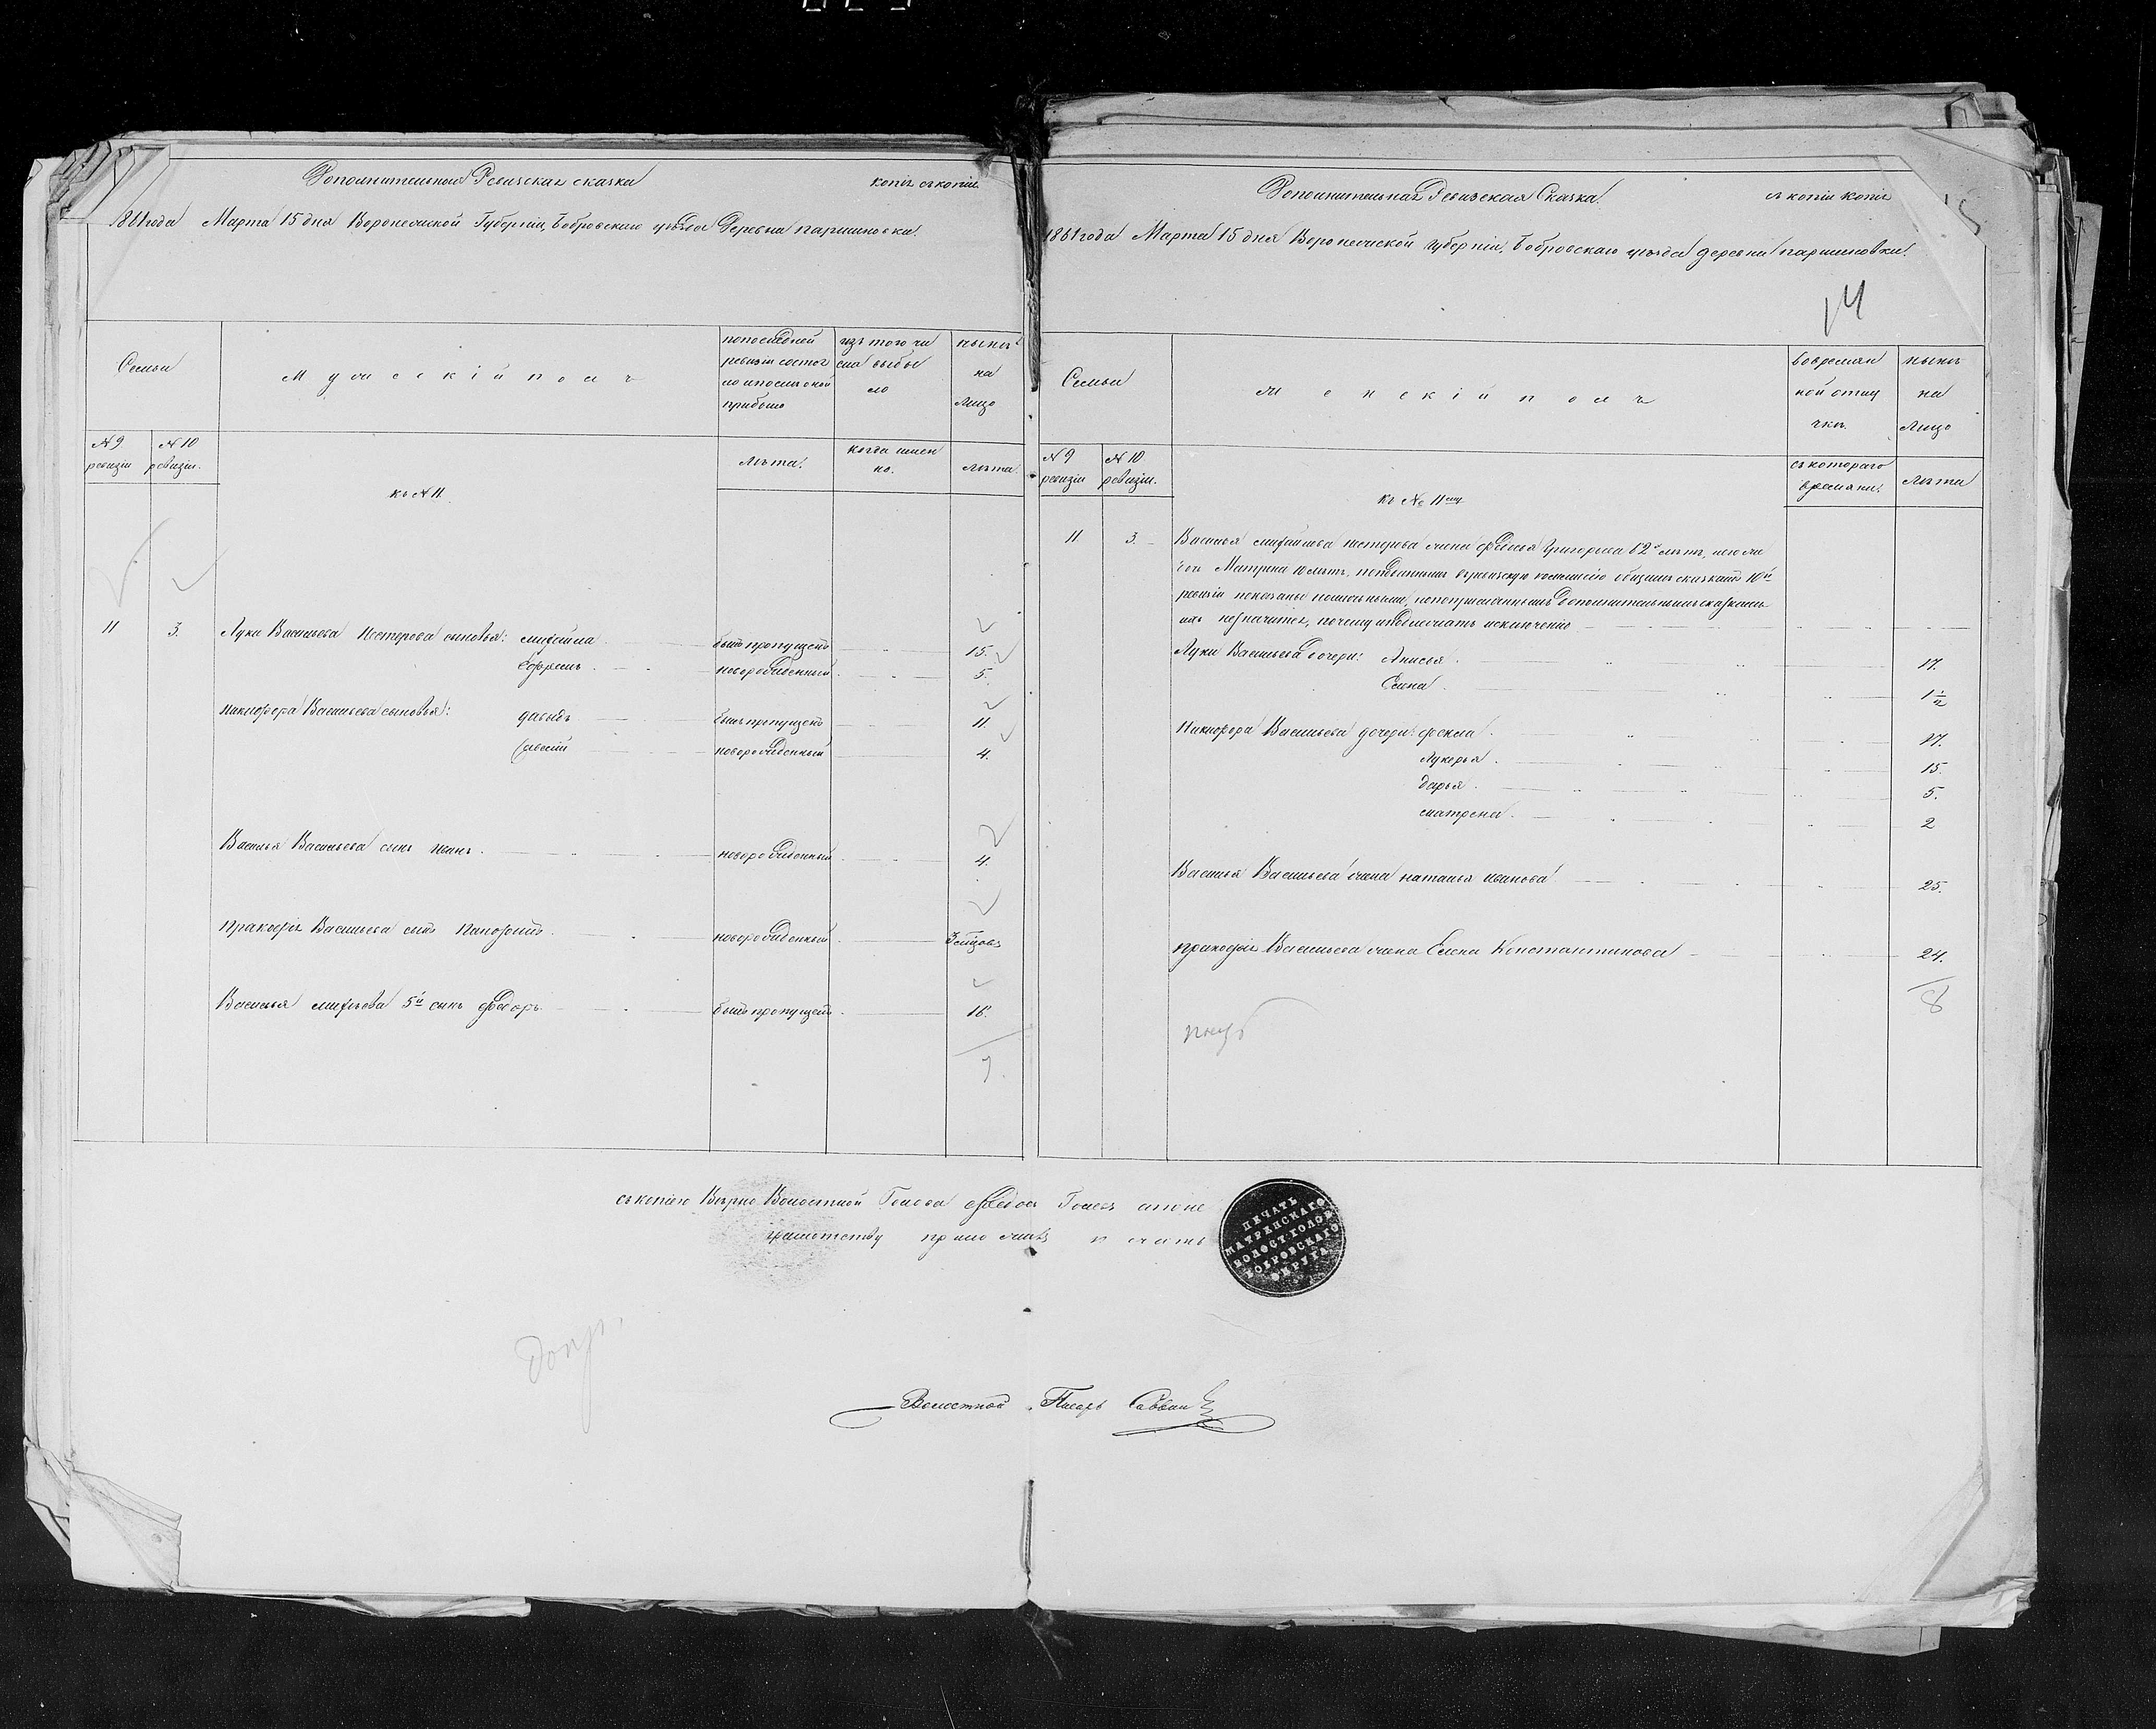 Дополнительная Ревизская сказка
копія съ копіи.
1861 года Марта 15 дня Воронежской Губерніи, Бобровскаго уѣзда Деревни паршиновки.
Семьи
Мужескій полъ
по последней ревизіи состояло и после оной прибыло
изъ того числа выбыло
нынѣ на лицо
№ 9 ревизіи
№ 10 ревизіи.
лѣта.
когда именно.
лѣта.
къ № 11.
11 3. Луки Васильева Нестерова сыновья: михайла былъ пропущенъ 15.
Ефремъ новорожденный 5.
Никифора Васильева сыновья: давыдъ былъ пропущенъ 11
новорожденный 4.
Василья Васильева сынъ Иванъ новорожденный 4.
Пракофія Васильева сынъ новорожденный
Василья 5й сынъ Федоръ былъ пропущенъ 16.
7.
Дополнительная Ревизская Сказка.
съ копіи копія
1861 года Марта 15 дня Воронежской губерніи, Бобровскаго уѣзда деревни паршиновки.
14
Семьи
Женскій полъ
во времянной отлучкѣ
нынѣ на лицо
№ 9 ревизіи
№ 10 ревизіи.
съ котораго времяни.
лѣта
къ № 11му
11 3. Василья михайлова нестерова жена Григорьева 62х лѣтъ, и его
Матрена 10 лѣтъ, по поданнымъ въ ревизскую коммисію общимъ сказкамъ 10й
ревизіи показаны, по дополнительнымъ сказкамъ
ихъ незначится, почему и подлежатъ исключенію
Луки Васильева дочери: Анисья 17.
Елена 1½
Никифора Васильева дочери: фекла 17.
Лукерья 15.
дарья 5.
матрена 2
Василья Васильева жена наталья иванова 25.
пракофія Васильева жена Елена Константинова 24.
8
съ копіею Вѣрно Волостной Голова а по не
грамотству приложилъ печать
ПЕЧАТЬ
МАТРЕНСКАГО
ВОЛОСТ. ГОЛОВ.
БОБРОВСКАГО
ОКРУГА
Волостной Писарь Саввин